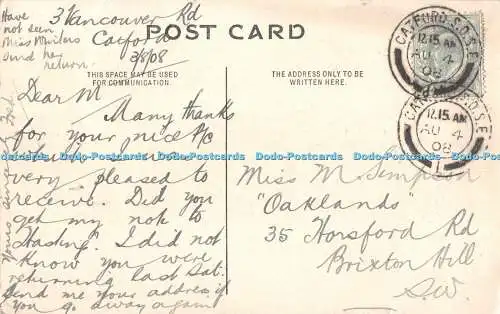 3 Vancouver Rd
Catford
3/8/08
Have
not seen
Miss
since her
return.
POST CARD
THIS SPACE MAY BE USED
FOR COMMUNICATION.
THE ADDRESS ONLY TO BE
WRITTEN HERE.
Dear M
Many thanks
for your nice P/c
which I was
very pleased to
receive. Did you
get my note to
Hastings. I did not
know you were
returning last Sat.
Send me your address if
you go away again
Yours
CATFORD.S.O.S.E
12.15 AM
AU 4
08
CATFORD.S.O.S.E
12.15 AM
AU 4
08
Miss M. Simpson
"Oaklands"
35 Horsford Rd
Brixton Hill
S.W.
Dodo-Postcards Dodo-Postcards Dodo-Postcards Dodo-Postcards Dodo-Postcards